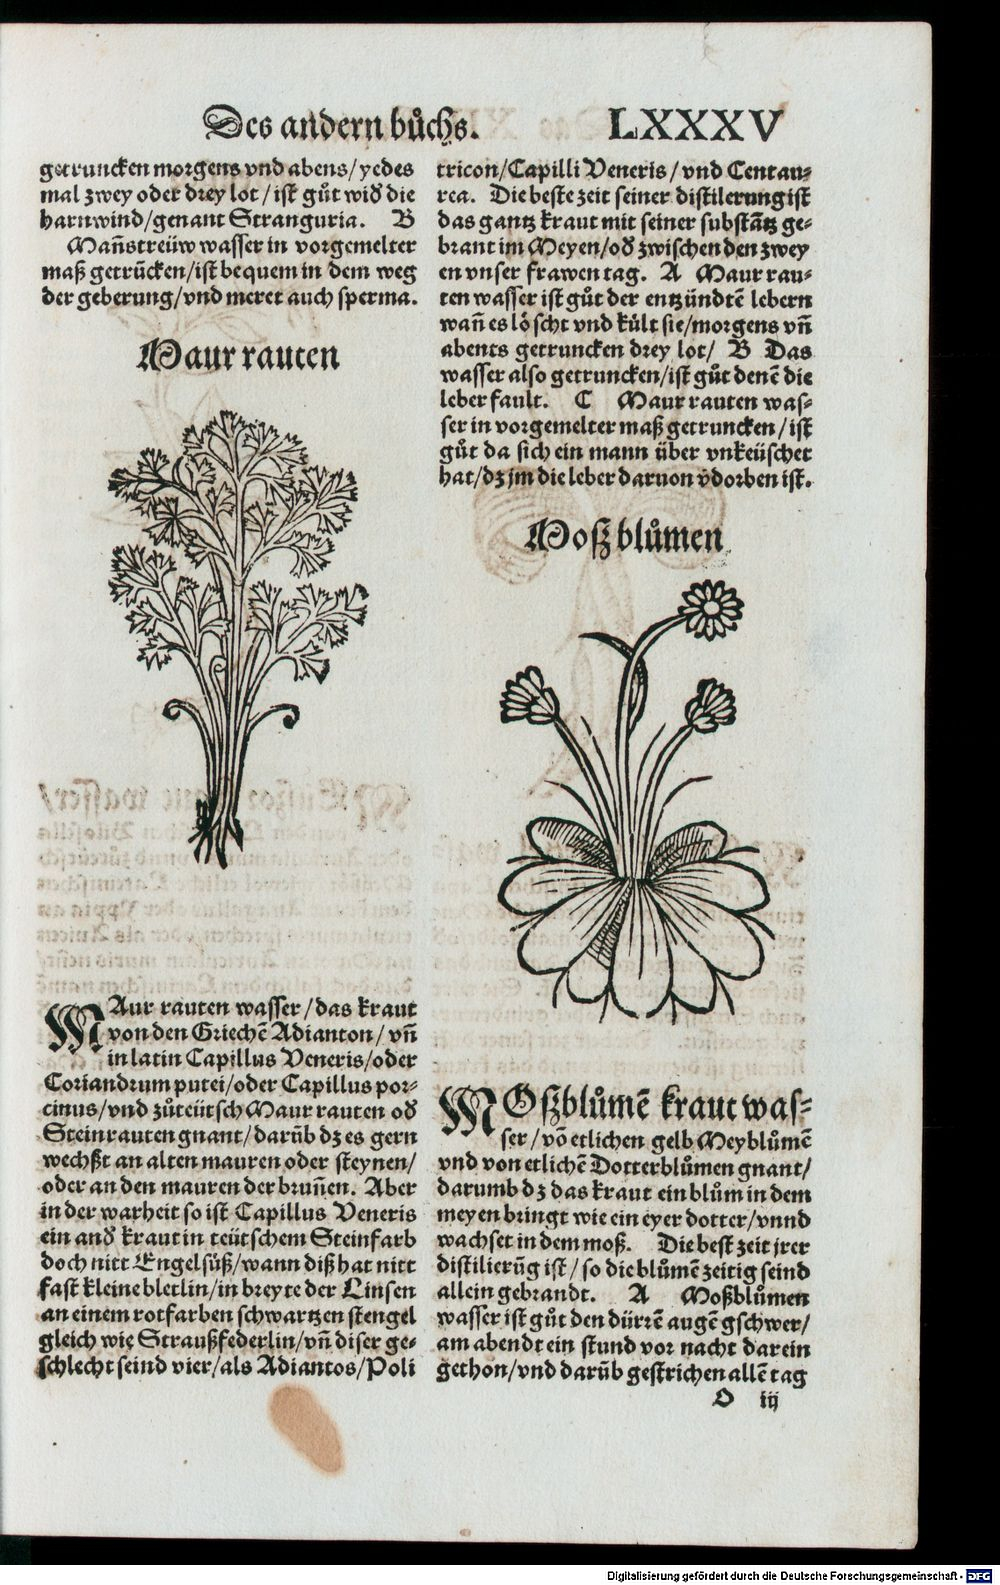 Des andern bůchs.
LXXXV
getruncken morgens vnd abens/yedes
mal zwey oder drey lot/ist gůt wid̕ die
harnwind/genant Stranguria. B
Mañstreüw wasser in vorgemelter
maß getrūcken/ist bequem in dem weg
der geberung/vnd meret auch sperma.
Maur rauten
MAur rauten wasser/das kraut
von den Griechē Adianton/vñ
in latin Capillus Veneris/oder
Coriandrum putei/oder Capillus por⸗
cinus/vnd zůteütsch Maur rauten od̕
Steinrauten gnant/darūb dz es gern
wechßt an alten mauren oder steynen/
oder an den mauren der bruñen. Aber
in der warheit so ist Capillus Veneris
ein and̕ kraut in teütschem Steinfarb
doch nitt Engelsüß/wann diß hat nitt
fast kleine bletlin/in breyte der Linsen
an einem rotfarben schwartzen stengel
gleich wie Straußfederlin/vñ diser ge⸗
schlecht seind vier/als Adiantos/Poli
tricon/Capilli Veneris/vnd Centau⸗
rea. Die beste zeit seiner distilerung ist
das gantz kraut mit seiner substātz ge⸗
brant im Meyen/od̕ zwischen den zwey
en vnser frawen tag. A Maur rau⸗
ten wasser ist gůt der entzündtē lebern
wañ es löscht vnd kůlt sie/morgens vñ
abents getruncken drey lot/ B Das
wasser also getruncken/ist gůt denē die
leber fault. C Maur rauten was⸗
ser in vorgemelter maß getruncken/ist
gůt da sich ein mann über vnkeüschet
hat/dz jm die leber daruon v̄dorben ist.
Moßblůmen
MOßblůmē kraut was⸗
ser/vō etlichen gelb Meyblůmē
vnd von etlichē Dotterblůmen gnant/
darumb dz das kraut ein blům in dem
meyen bringt wie ein eyer dotter/vnnd
wachset in dem moß. Die best zeit jrer
distilierūg ist/so die blůmē zeitig seind
allein gebrandt. A Moßblůmen
wasser ist gůt den dürrē augē gschwer/
am abendt ein stund vor nacht darein
gethon/vnd darūb gestrichen allē tag
O iij
Digitalisierung gefördert durch die Deutsche Forschungsgemeinschaft - DFG